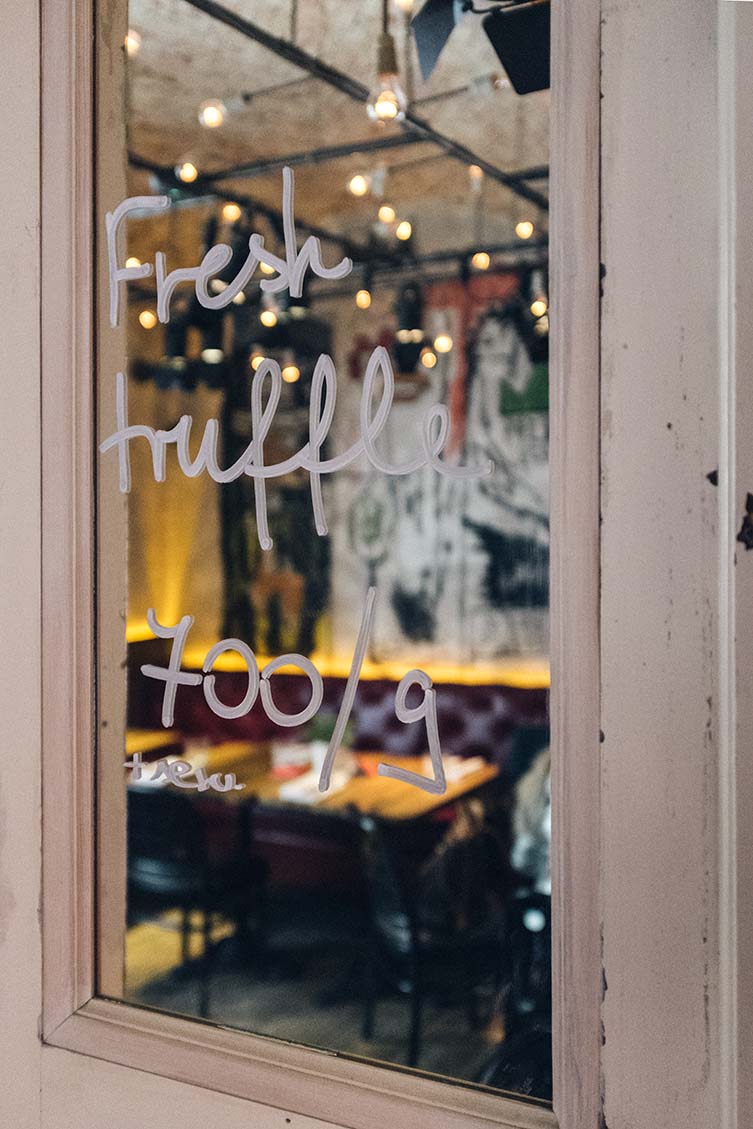 Fresh
truffle
700/g